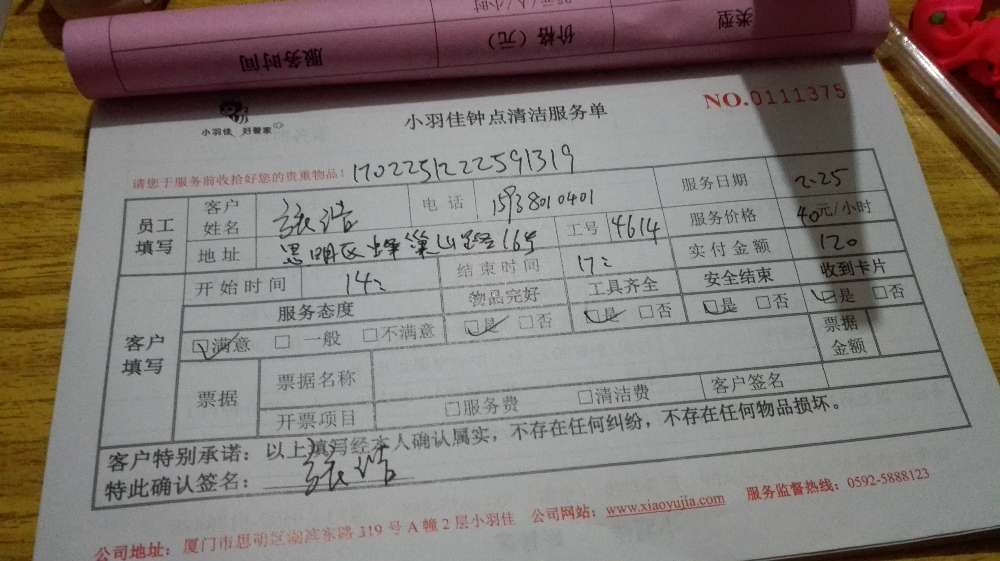 服务时间 价格（元） 类型
小羽佳 好管家
小羽佳钟点清洁服务单
NO.0111375
请您于服务前收拾好您的贵重物品！ 1702251222591319
员工填写 客户姓名 张浩 电话 15938010401 服务日期 2.25
地址 思明区蜂巢山路16号 工号 4614 服务价格 40元/小时
客户填写 开始时间 14: 结束时间 17: 实付金额 120
服务态度 物品完好 工具齐全 安全结束 收到卡片
☑满意 □一般 □不满意 ☑是 □否 ☑是 □否 ☑是 □否 ☑是 □否
票据 票据名称 票据金额
开票项目 □服务费 □清洁费 客户签名
客户特别承诺：以上填写经本人确认属实，不存在任何纠纷，不存在任何物品损坏。
特此确认签名： 张浩
公司地址：厦门市思明区湖滨东路319号A幢2层小羽佳 公司网站：www.xiaoyujia.com 服务监督热线：0592-5888123